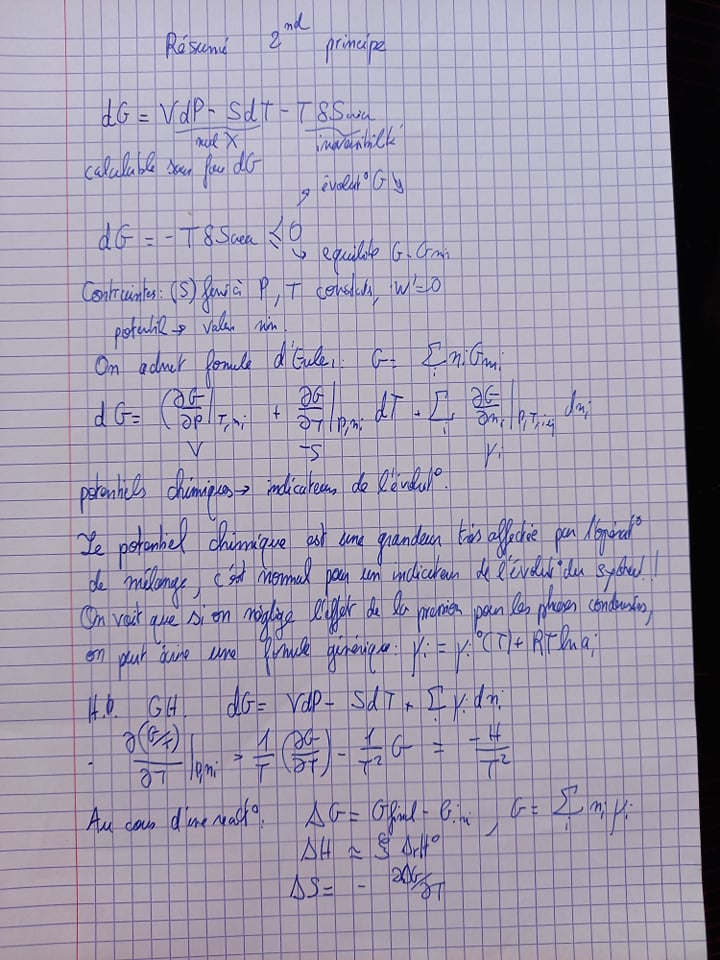 Résumé 2nd principe
dG = VdP - SdT - T δScréa
calculable sans faire dG
évolut° G ↘
dG = -T δScréa ≤ 0
équilibre G = Gmin
Contraintes: (S) fermé à P, T constants, W'=0
potentiel → valeur min.
On admet formule d'Euler: G = Σ ni Gmi
dG = (∂G/∂P|T,ni + ∂G/∂T|P,ni dT + Σi ∂G/∂ni|P,T, dni
V -S μi
potentiels chimiques → indicateurs de l'évolut°.
Le potentiel chimique est une grandeur très affectée par l'opérat°
de mélange, c'est normal pour un indicateur de l'évolut° du système!!
On voit que si on néglige l'effet de la pression pour les phases condensées,
on peut écrire une formule générique: μi = μi°(T) + RT ln ai
GH. dG = VdP - SdT + Σ μi dni
∂(G/T)/∂T|P,ni = 1/T (∂G/∂T) - 1/T² G = -H/T²
Au cours d'une react°. ΔG = Gfinal - Gini , G = Σi ni μi
ΔH ≈ ξ ΔrH°
ΔS = - ∂ΔG/∂T